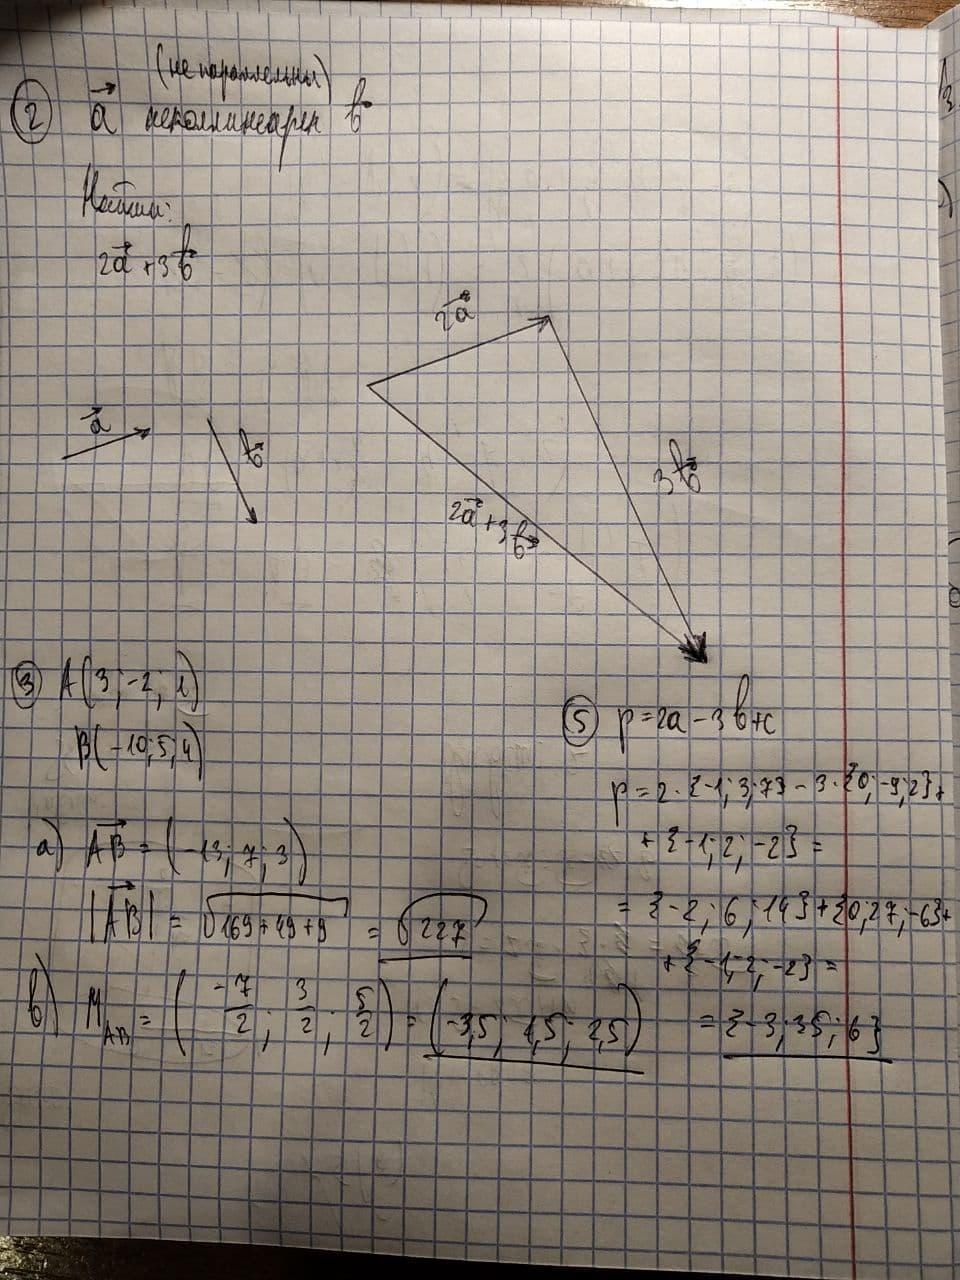 (не параллельны)
② a⃗ неколлинеарен b⃗
Найти:
2a⃗ + 3b⃗
2a⃗
a⃗
b⃗
3b⃗
2a⃗ + 3b⃗
③ A(3; -2; 1)
B(-10; 5; 4)
a) AB⃗ = (-13; 7; 3)
|AB⃗| = √169+49+9 = √227
в) M_AB = (-7/2; 3/2; 5/2) = (-3,5; 1,5; 2,5)
⑤ p = 2a - 3b + c
p = 2·{-1; 3; 7} - 3·{0; -9; 2} +
+ {-1; 2; -2} =
= {-2; 6; 14} + {0; 27; -6} +
+ {-1; 2; -2} =
= {-3; 35; 6}